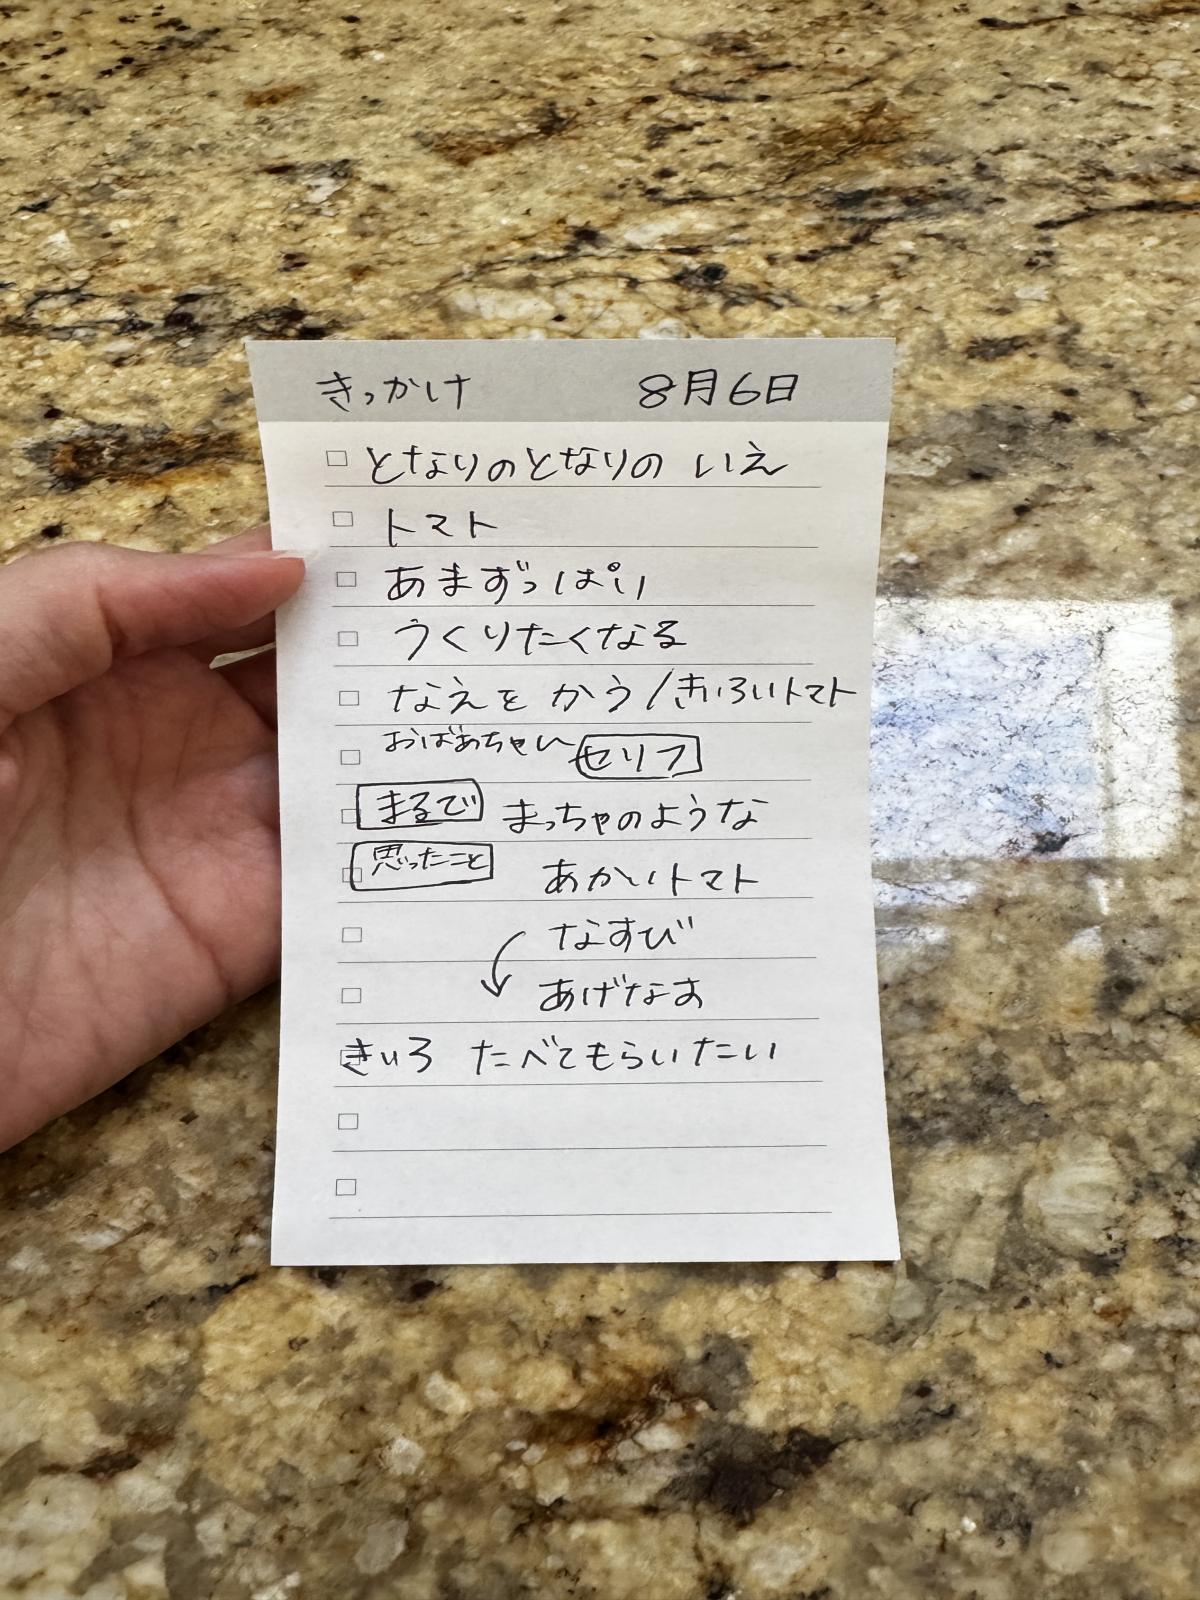 きっかけ 8月6日
となりのとなりの いえ
トマト
あまずっぱい
うくりたくなる
なえを かう/きいろいトマト
おばあちゃん セリフ
まるで まっちゃのような
思ったこと あかいトマト
なすび
あげなお
きいろ たべてもらいたい